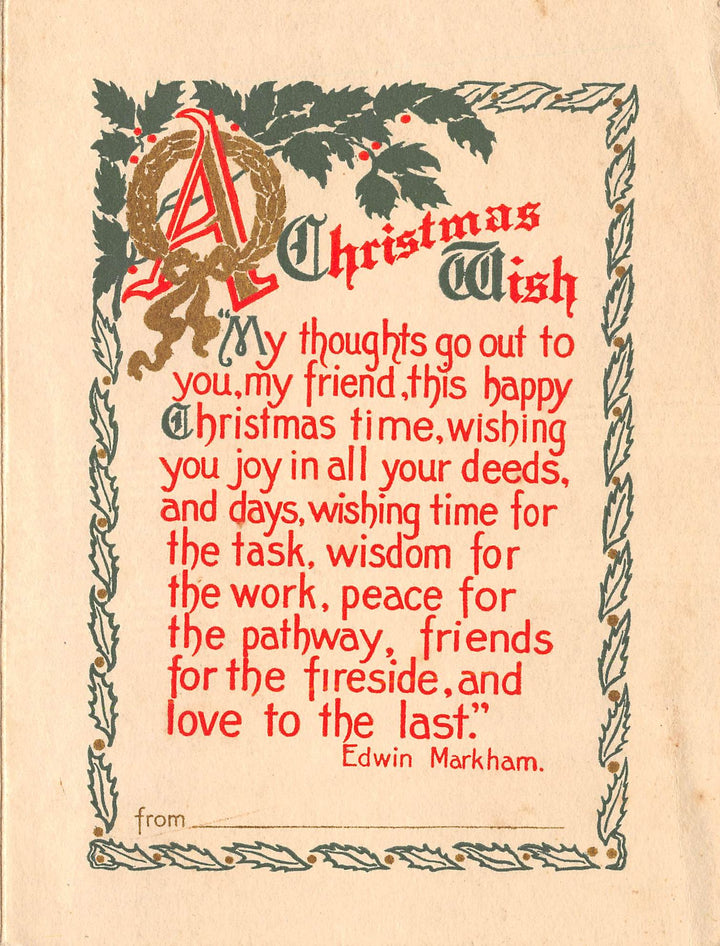 A Christmas
Wish
"My thoughts go out to
you, my friend, this happy
Christmas time, wishing
you joy in all your deeds,
and days, wishing time for
the task, wisdom for
the work, peace for
the pathway, friends
for the fireside, and
love to the last."
Edwin Markham.
from